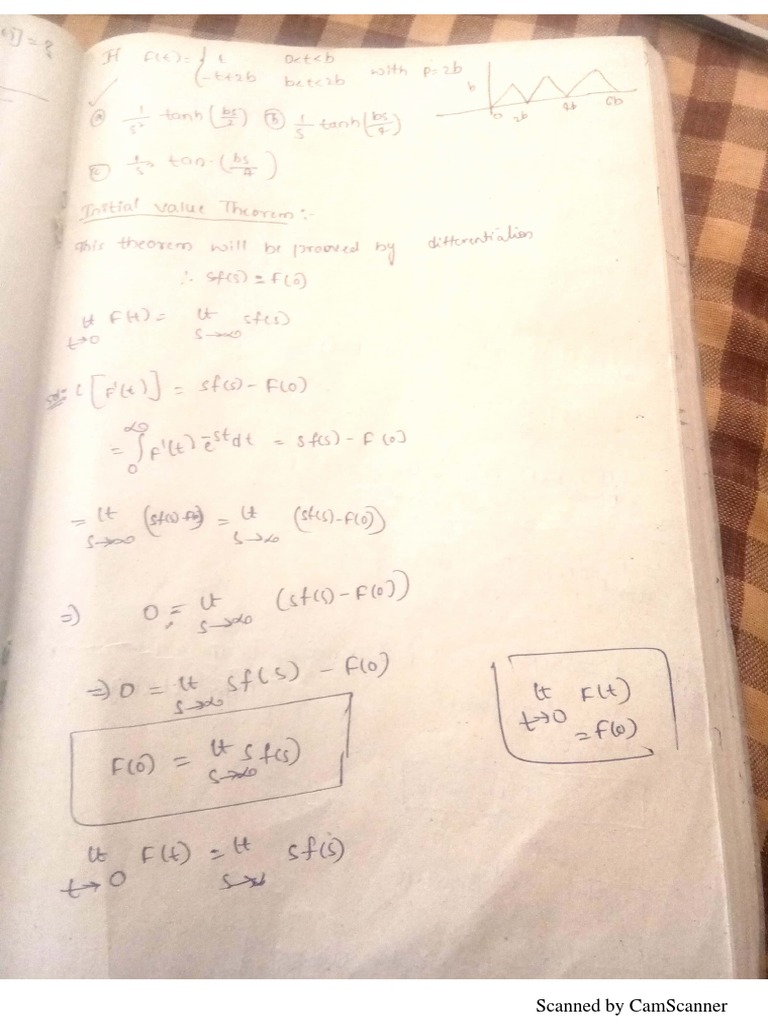 If F(t) = { t 0<t<b
-t+2b b<t<2b with p=2b
b
0 2b 4b 6b
✓
(a) 1/s² tanh(bs/2) (b) 1/s tanh(bs/4)
(c) tan (bs/4)
Initial value Theorem:-
This theorem will be prooved by differentiation
∴ sf(s) = F(0)
lt t→0 F(t) = lt s→∞ sf(s)
Sol:- L[F'(t)] = sf(s) - F(0)
= ∫₀^∞ F'(t) e^-st dt = sf(s) - F(0)
= lt s→∞ = lt s→∞ (sf(s) - F(0))
⇒ 0 = lt s→∞ (sf(s) - F(0))
⇒ 0 = lt s→∞ sf(s) - F(0)
F(0) = lt s→∞ sf(s)
lt t→0 F(t)
= f(0)
lt t→0 F(t) = lt sf(s)
Scanned by CamScanner